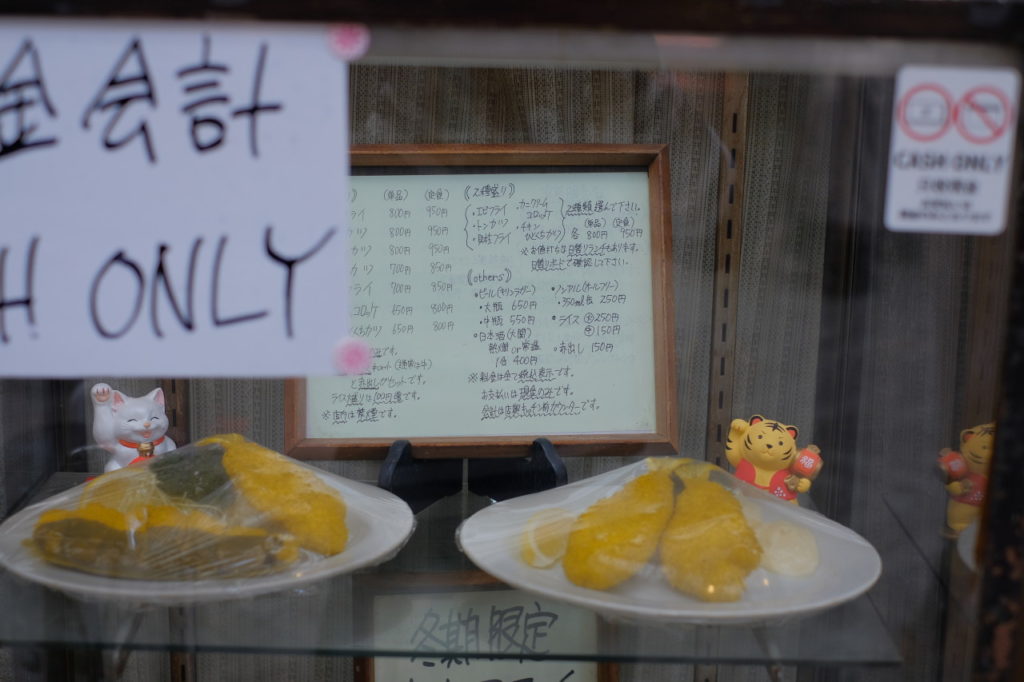 金会計
H ONLY
(単品) (定食)
ライ 800円 950円
カツ 800円 950円
カツ 800円 950円
カツ 700円 850円
ライ 700円 850円
コロッケ 650円 800円
くちカツ 650円 800円
です。
と赤出しがセットです。
ライス盛りは100円増です。
※店内は禁煙です。
《2種盛り》
・エビフライ
・トンカツ
フライ
・カニクリームコロッケ
・チキン
カツ
2種類選んで下さい。
(単品) (定食)
各 800円 950円
※お値打ちな日替りランチもあります。
日替りボードで確認して下さい。
《others》
・ビール(キリンラガー)
・大瓶 650円
・中瓶 550円
・日本酒(大関)
熱燗 or 常温
1合 400円
・ノンアル(オールフリー)
・350ml缶 250円
・ライス 大 250円
150円
・赤出し 150円
※料金は全て税込表示です。
お支払いは現金のみです。
会計は店奥キッチン前カウンターです。
CASH ONLY
福
冬期限定